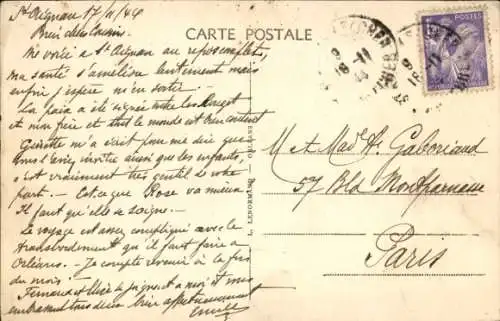 CARTE POSTALE
POSTES
St Aignan 17/11/44
Bien chers Cousins.
Me voici à St Aignan au repos complet,
ma santé s'améliore lentement mais
enfin j'espère m'en sortir.
La paix a été signée entre les
et mon frère et tout le monde est bien content
Ginette m'a écrit pour me dire que
vous l'aviez invitée ainsi que les enfants,
c'est vraiment très gentil de votre
part. - Est-ce que Rose va mieux
Il faut qu'elle se soigne.
Le voyage est assez compliqué avec le
transbordement qu'il faut faire à
Orléans. - Je compte revenir à la fin
du mois.
Fernand et se joignent à moi et
embrassons tous deux bien affectueusement
L. LENORMAND, ORLÉANS
M. et Mad. H. Gaboriaud
57 Bld Montparnasse
Paris